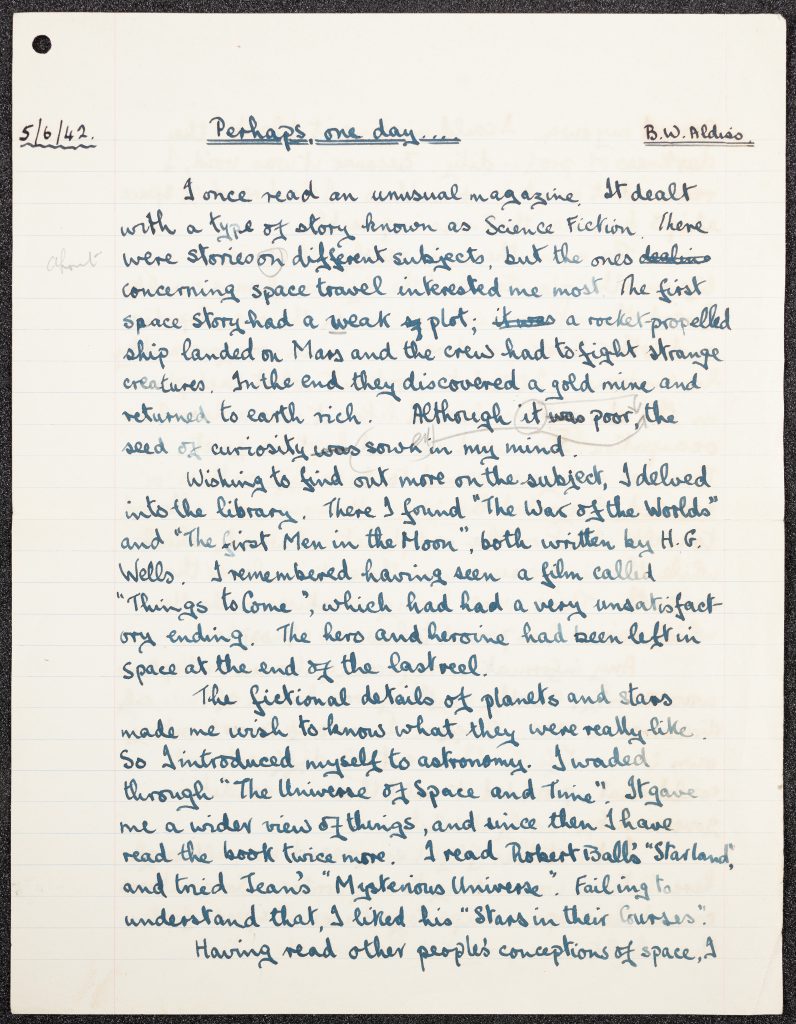 5/6/42. Perhaps, one day.... B.W. Aldiss.
I once read an unusual magazine. It dealt
with a type of story known as Science Fiction. There
about were stories on different subjects, but the ones dealing
concerning space travel interested me most. The first
space story had a weak plot; it was a rocket-propelled
ship landed on Mars and the crew had to fight strange
creatures. In the end they discovered a gold mine and
returned to earth rich. Although it was poor, the
seed of curiosity was sown in my mind.
Wishing to find out more on the subject, I delved
into the library. There I found "The War of the Worlds"
and "The first Men in the Moon", both written by H.G.
Wells. I remembered having seen a film called
"Things to Come", which had had a very unsatisfact-
ory ending. The hero and heroine had been left in
space at the end of the last reel.
The fictional details of planets and stars
made me wish to know what they were really like.
So I introduced myself to astronomy. I waded
through "The Universe of Space and Time". It gave
me a wider view of things, and since then I have
read the book twice more. I read Robert Ball's "Starland",
and tried Jean's "Mysterious Universe". Failing to
understand that, I liked his "Stars in their Courses".
Having read other people's conceptions of space, I